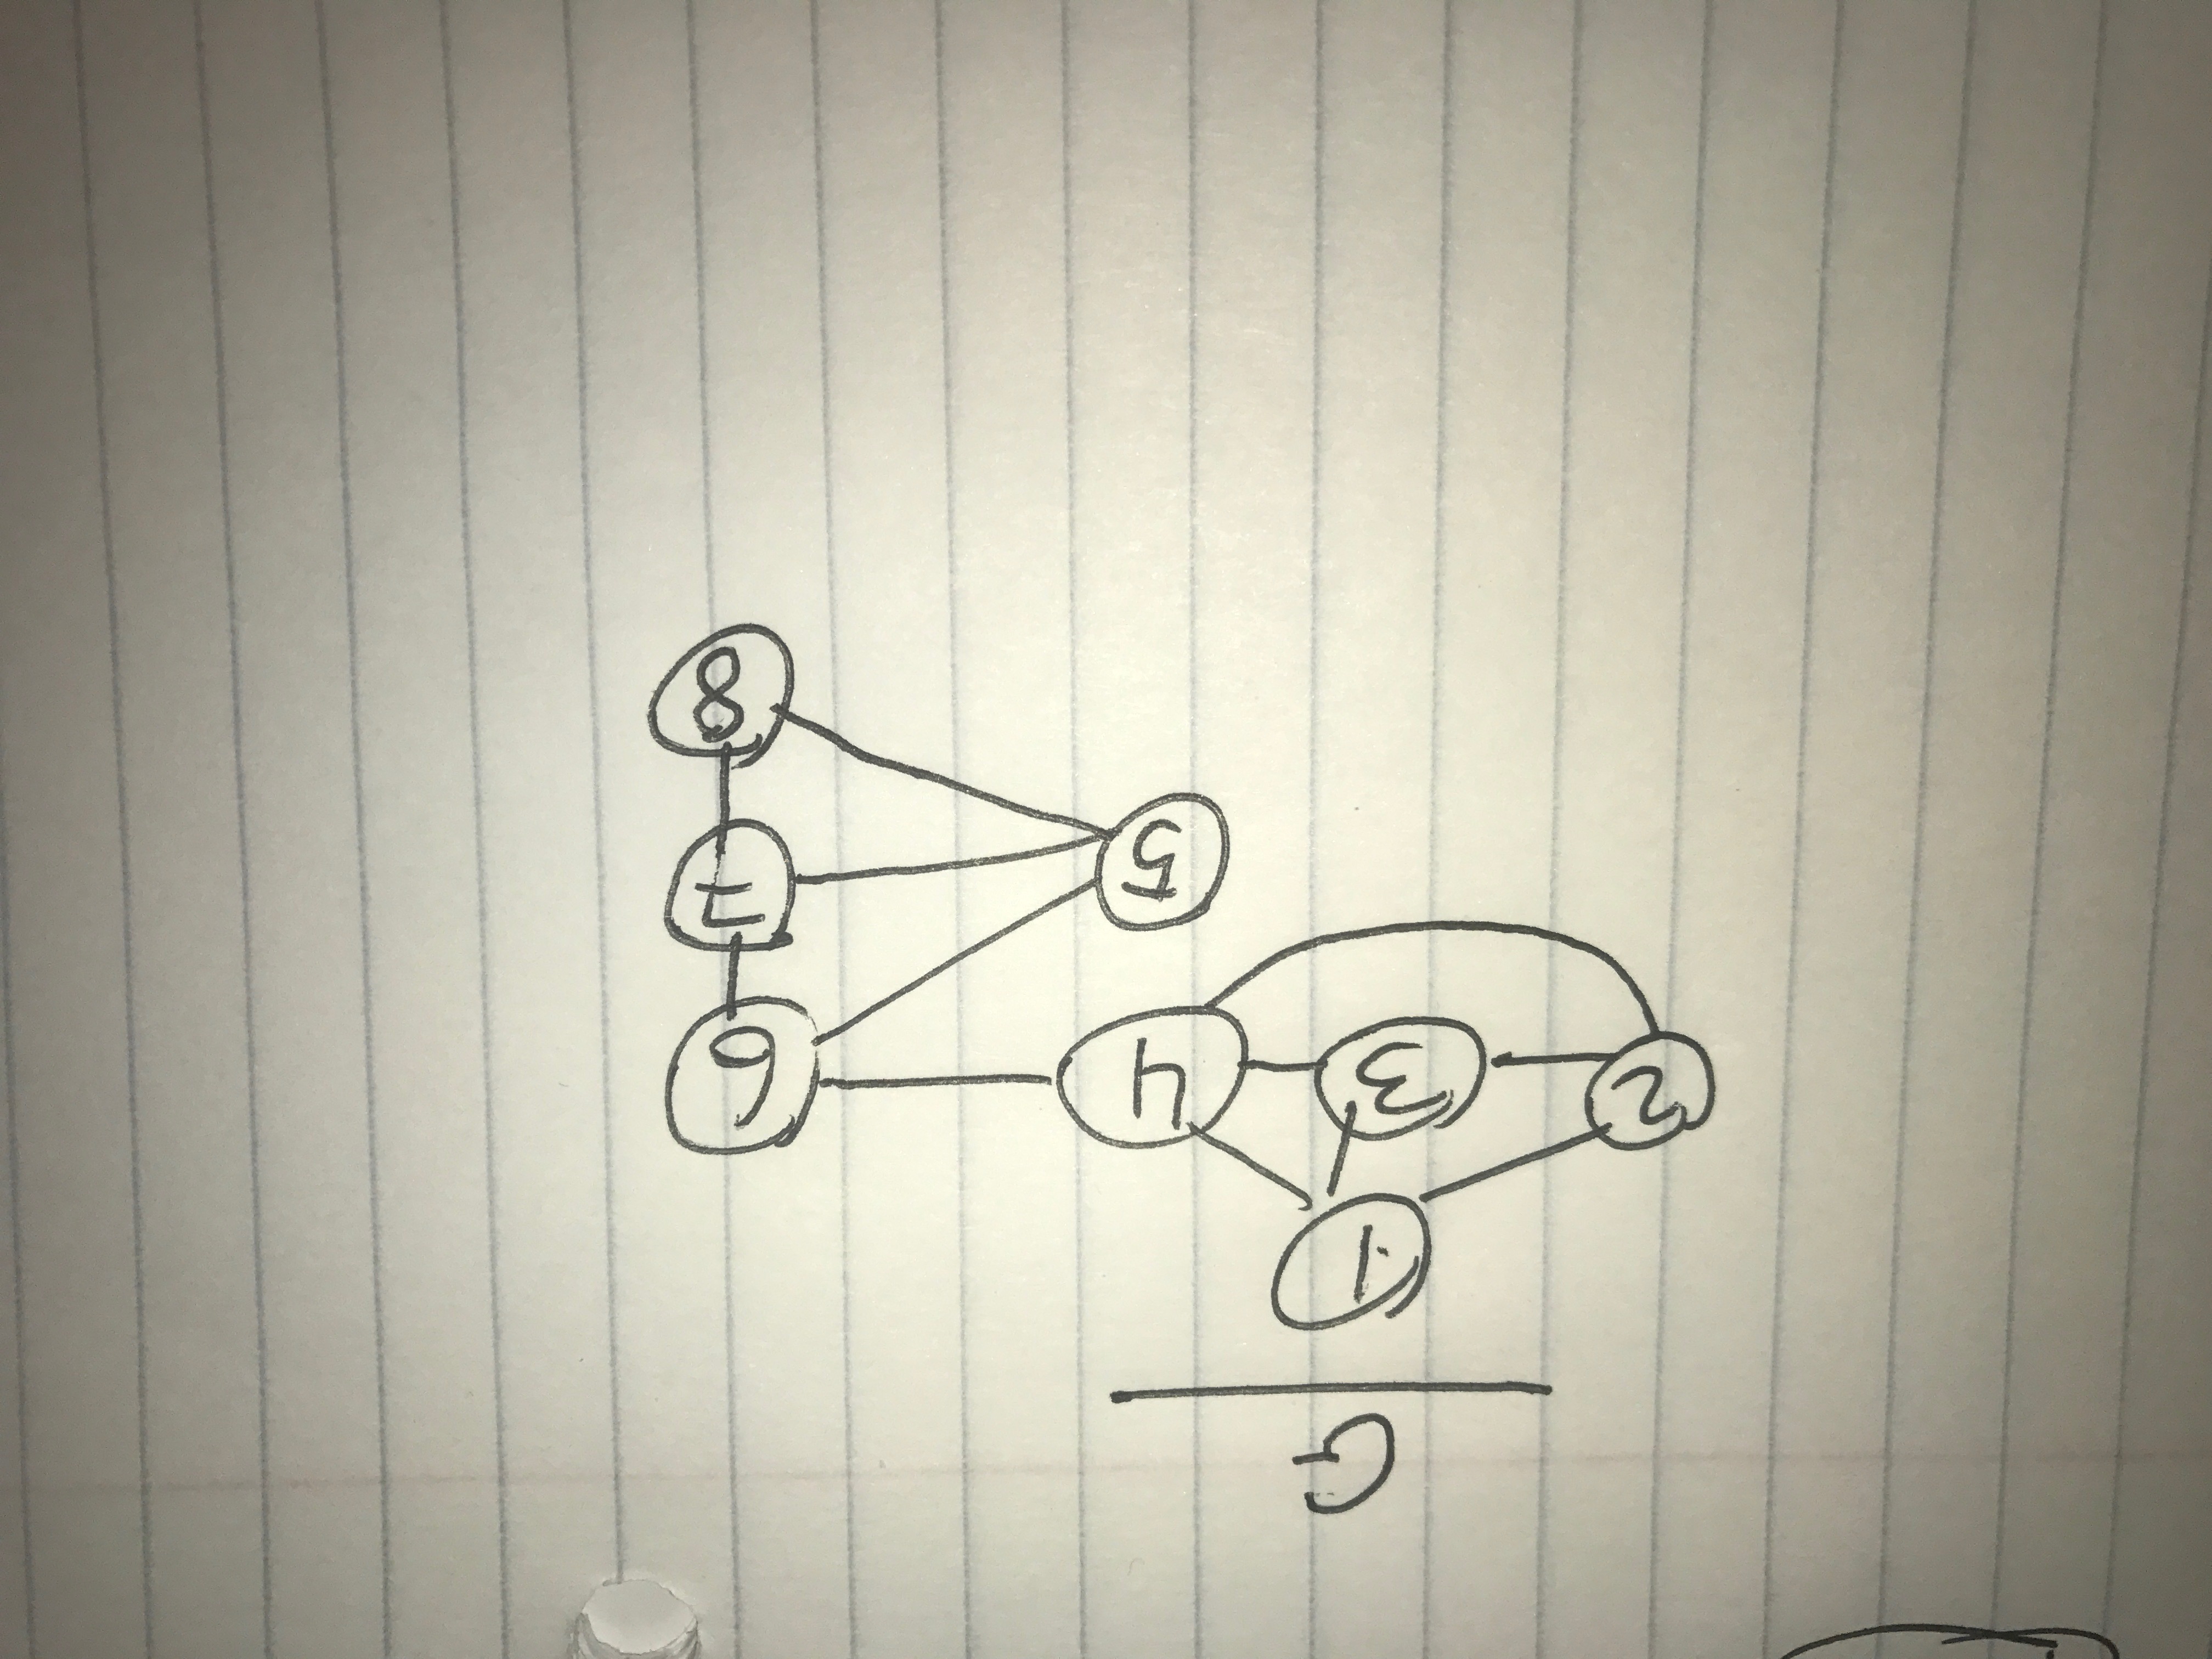 G
1
2 3 4 6
5 7
8